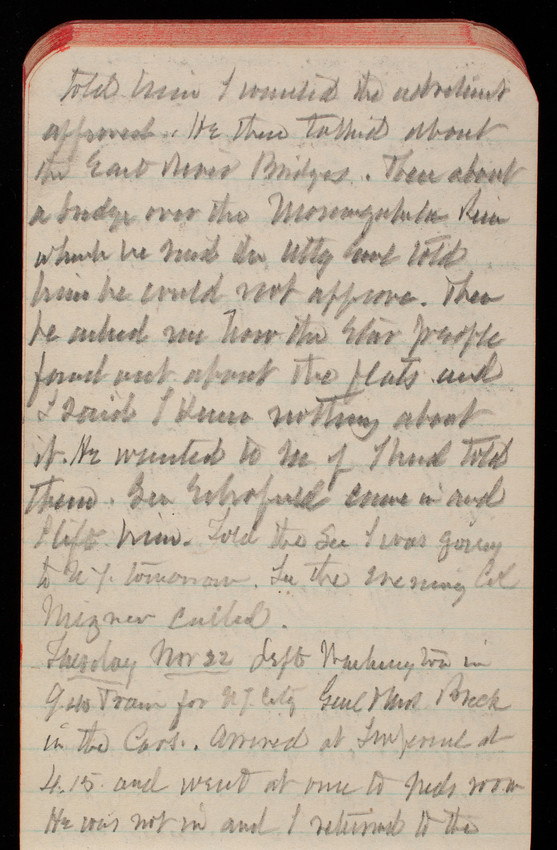 told him I wanted the
approved. He then talked about
the East River Bridges. Then about
a bridge over the Monongahela River
which he said the Atty had told
him he could not approve. Then
he asked me how the Star people
found out about the flats and
I said I knew nothing about
it. He wanted to see if I had told
them. Gen Schofield came in and
I left him. Told the Sec I was going
to N.Y. tomorrow. In the evening Col
called.
Tuesday Nov 22 Left Washington in
Train for N.Y. City Genl & Mrs Breck
in the Cars. Arrived at Imperial at
4.15 and went at once to Neds room
He was not in and I returned to the